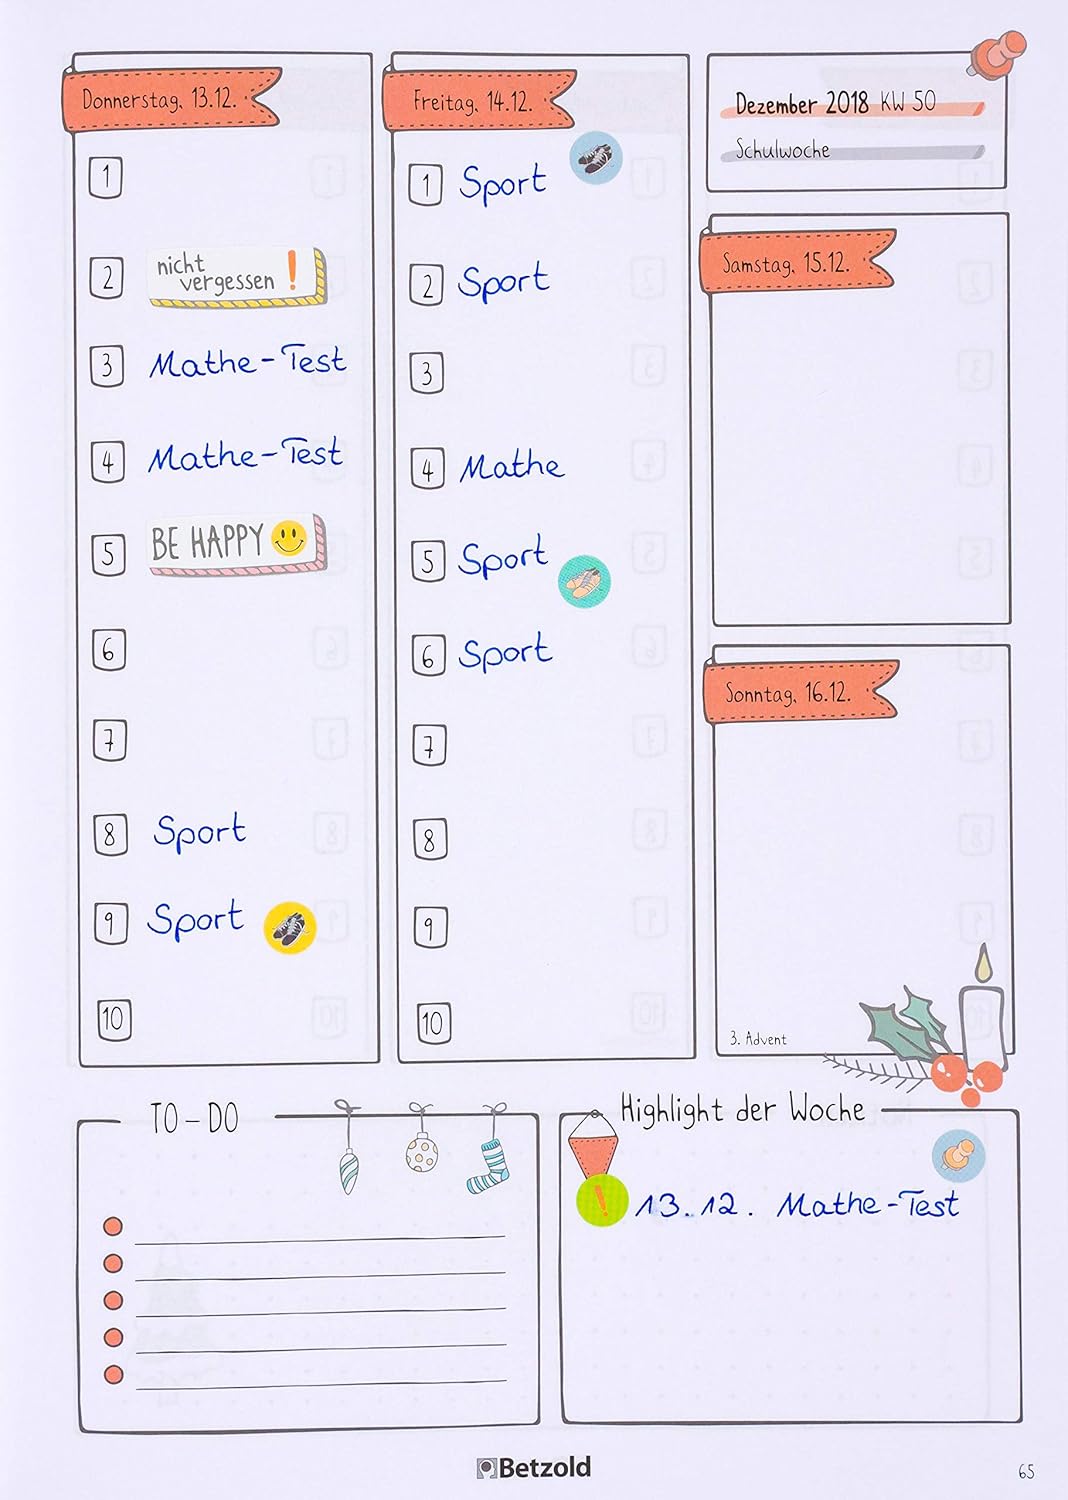 Donnerstag, 13.12.
1
2 nicht
vergessen !
3 Mathe-Test
4 Mathe-Test
5 BE HAPPY
6
7
8 Sport
9 Sport
10
Freitag, 14.12.
1 Sport
2 Sport
3
4 Mathe
5 Sport
6 Sport
7
8
9
10
Dezember 2018 KW 50
Schulwoche
Samstag, 15.12.
Sonntag, 16.12.
3. Advent
TO-DO
Highlight der Woche
! 13.12. Mathe-Test
Betzold
65